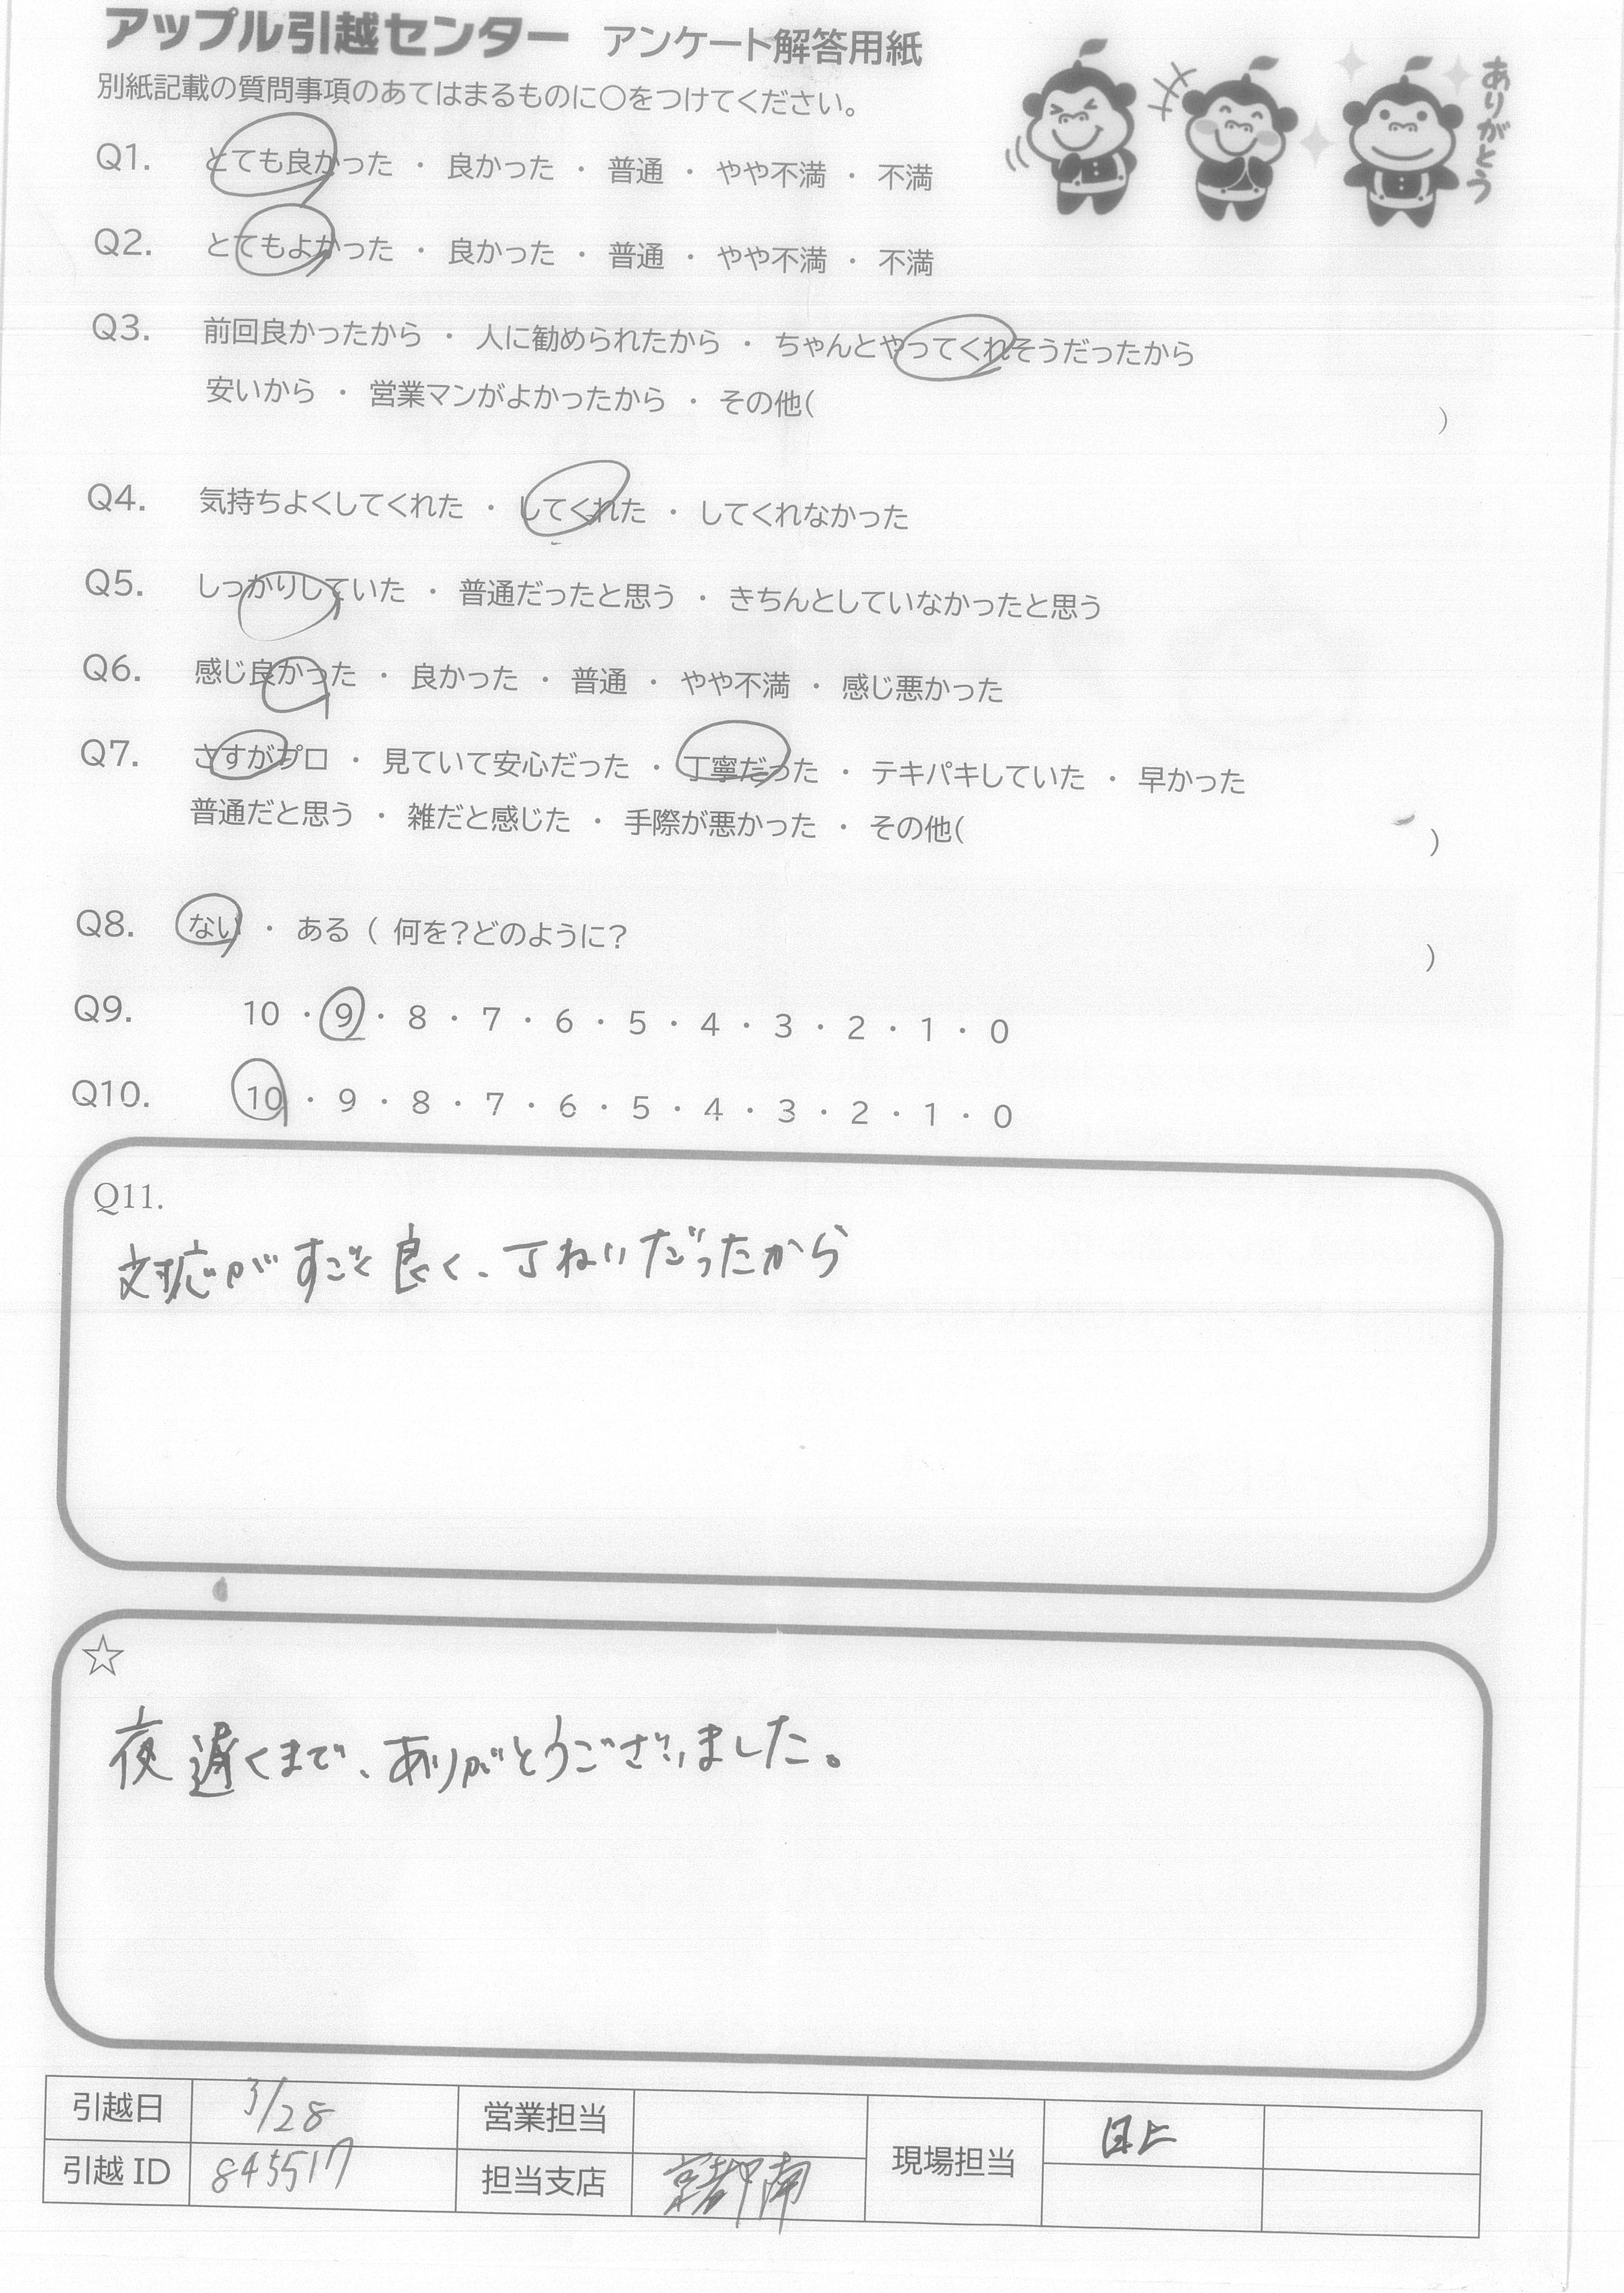 アップル引越センター アンケート解答用紙
別紙記載の質問事項のあてはまるものに〇をつけてください。
ありがとう
Q1. とても良かった ・ 良かった ・ 普通 ・ やや不満 ・ 不満
Q2. とてもよかった ・ 良かった ・ 普通 ・ やや不満 ・ 不満
Q3. 前回良かったから ・ 人に勧められたから ・ ちゃんとやってくれそうだったから
安いから ・ 営業マンがよかったから ・ その他( )
Q4. 気持ちよくしてくれた ・ してくれた ・ してくれなかった
Q5. しっかりしていた ・ 普通だったと思う ・ きちんとしていなかったと思う
Q6. 感じ良かった ・ 良かった ・ 普通 ・ やや不満 ・ 感じ悪かった
Q7. さすがプロ ・ 見ていて安心だった ・ 丁寧だった ・ テキパキしていた ・ 早かった
普通だと思う ・ 雑だと感じた ・ 手際が悪かった ・ その他( )
Q8. ない ・ ある ( 何を?どのように? )
Q9. 10 ・ 9 ・ 8 ・ 7 ・ 6 ・ 5 ・ 4 ・ 3 ・ 2 ・ 1 ・ 0
Q10. 10 ・ 9 ・ 8 ・ 7 ・ 6 ・ 5 ・ 4 ・ 3 ・ 2 ・ 1 ・ 0
Q11.
対応がすごく良く、丁ねいだったから
☆
夜遅くまで、ありがとうございました。
引越日 3/28 営業担当 現場担当
引越 ID 845517 担当支店 京都南